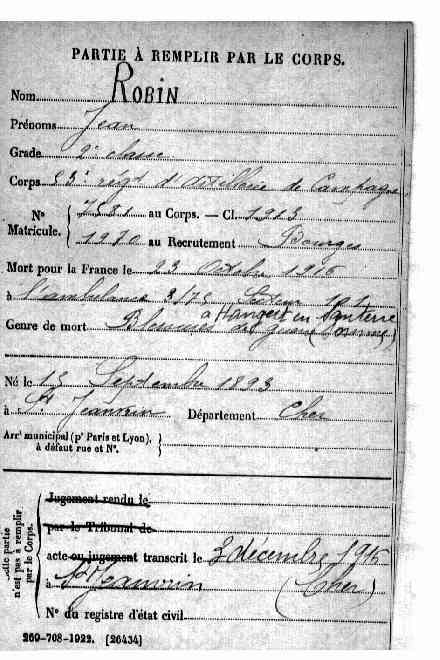 PARTIE À REMPLIR PAR LE CORPS.
Nom ROBIN
Prénoms Jean
Grade 2e classe
Corps 85e regt d'artillerie de Campagne
Nº Matricule. { 7581 au Corps. — Cl. 1913
1980 au Recrutement Bourges
Mort pour la France le 23 Octobre 1915
à l'ambulance 3/75 Secteur 101
à Hangest en Santerre
Genre de mort Blessures de guerre (Somme)
Né le 15 Septembre 1893
à St Jeanvrin Département Cher
Arrt municipal (pr Paris et Lyon),
à défaut rue et Nº.
Cette partie
n'est pas à remplir
par le Corps.
Jugement rendu le
par le Tribunal de
acte ou jugement transcrit le 3 décembre 1915
à St Jeanvrin (Cher)
Nº du registre d'état civil
260-708-1922. [26434]